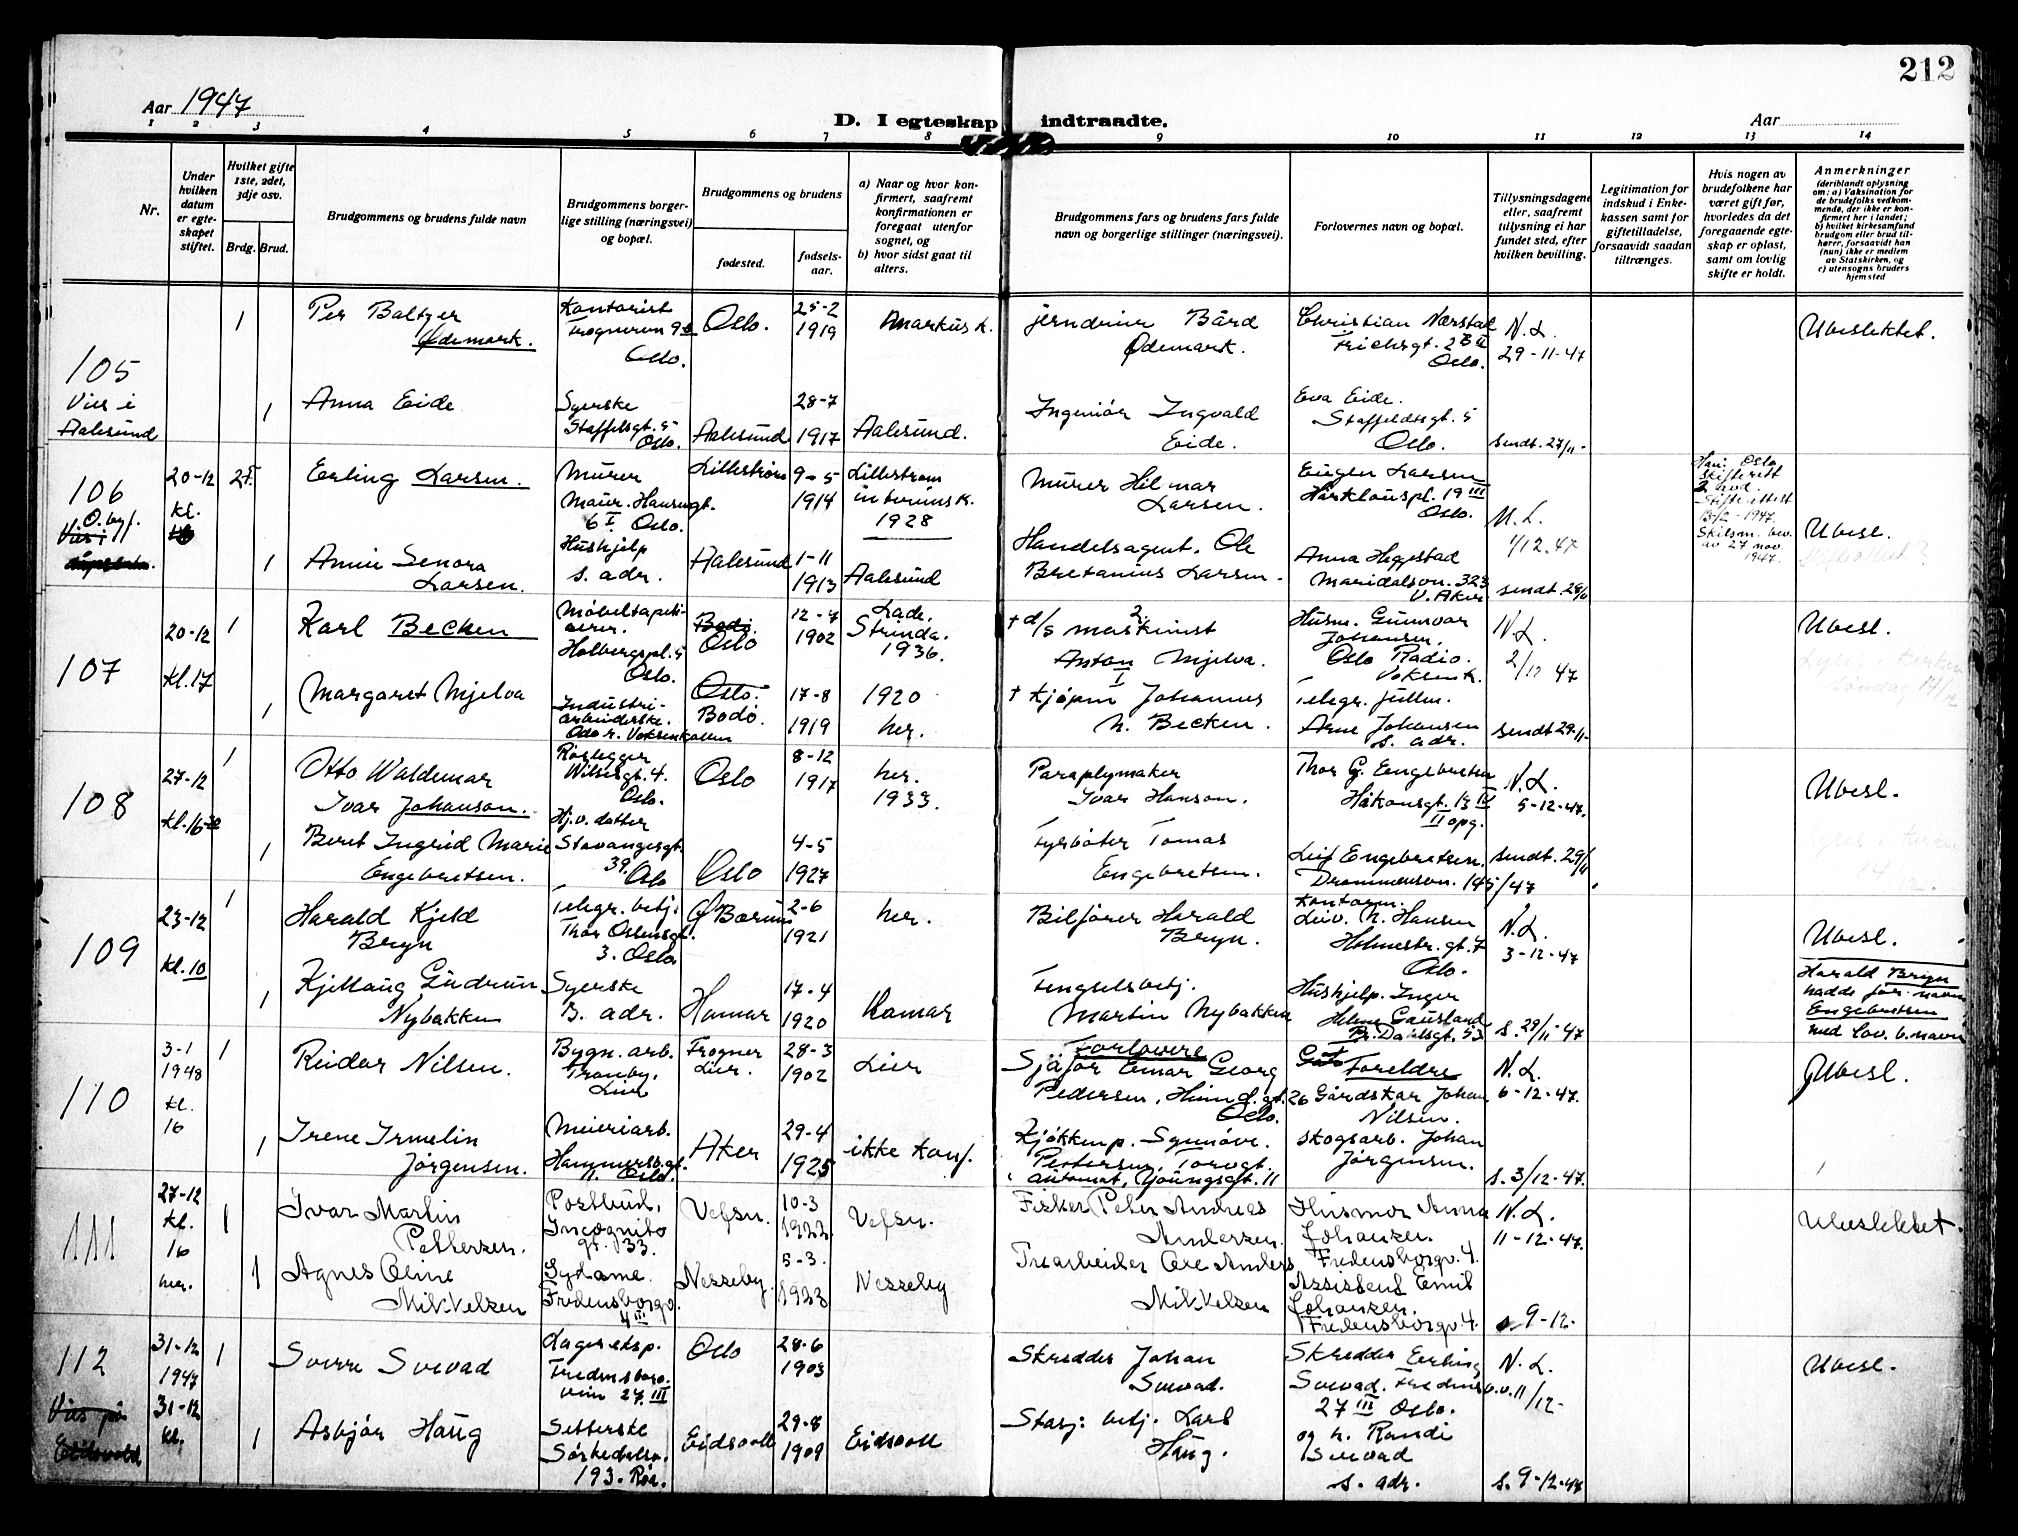 212
Aar 1947
D. I egteskap indtraadte.
Aar
1 2 3 4 5 6 7 8 9 10 11 12 13 14
Nr.
Under hvilken datum er egteskapet stiftet.
Hvilket gifte 1ste, 2det, 3dje osv.
Brdg. Brud.
Brudgommens og brudens fulde navn
Brudgommens borgerlige stilling (næringsvei) og bopæl.
Brudgommens og brudens
fødested.
fødselsaar.
a) Naar og hvor konfirmert, saafremt konfirmationen er foregaat utenfor sognet, og
b) hvor sidst gaat til alters.
Brudgommens fars og brudens fars fulde navn og borgerlige stillinger (næringsvei).
Forlovernes navn og bopæl.
Tillysningsdagene eller, saafremt tillysning ei har fundet sted, efter hvilken bevilling.
Legitimation for indskud i Enkekassen samt for giftetilladelse, forsaavidt saadan tiltrænges.
Hvis nogen av brudefolkene har været gift før, hvorledes da det foregaaende egteskap er opløst, samt om lovlig skifte er holdt.
Anmerkninger
(deriblandt oplysning om: a) Vaksination for de brudefolks vedkommende, der ikke er konfirmert her i landet; b) hvilket kirkesamfund brudgom eller brud tilhører, forsaavidt han (hun) ikke er medlem av Statskirken, og c) utensogns bruders hjemsted
105
Vies i
Aalesund
1
Per Baltzer
Ødemark.
Kontorist
Oslo.
Oslo.
25-2
1919
Markus k.
Bård
Ødemark.
Christian Nærstad
Oslo.
N. L.
29-11-47
Ubeslektet.
1
Anna Eide
Syerske
Staffelsgt. 5
Oslo.
Aalesund
28-7
1917
Aalesund.
Ingeniør Ingvald
Eide.
Eva Eide.
Staffeldtsgt. 5
Oslo.
sendt. 27/11-
106
O. byf.
20-12
kl.
Erling Larsen.
Murer
6 I Oslo.
Lillestrøm
9-5
1914
Lillestrøm
interimsk.
1928
Murer Hilmar
Larsen.
Eugen Larsen
Oslo.
1/12.47
Oslo
Skifterett
13/2-1947.
av 27 nov
1947.
Ubesl.
1
Annie Senora
Larsen.
Hushjelp
s. adr.
Aalesund
1-11
1913
Aalesund
Handelsagent. Ole
Bretanius Larsen.
Anna Hegestad
Maridalsvn. 323
V. Aker
107
20-12
kl. 17
1
Karl Becken
Møbeltapetserer.
Holbergspl. 5
Oslo.
Bodø
Oslo
12-7
1902
Lade,
Strinda.
1936.
2.
† d/s maskinist
Anton Mjelva.
Gunnvor
Johansen.
Oslo Radio.
N. L.
2/12 47
Ubesl.
1
Margaret Mjelva
Industriarbeiderske.
Oslo.
Bodø.
17-8
1919
1920
her.
1
† Kjøpm Johannes
N. Becken.
Telegr. fullm.
Arne Johansen
s. adr.
sendt 29-11-
108
27-12
kl. 16 30
1
Otto Waldemar
Ivar Johanson.
Rørlegger
Nilsesgt. 4.
Oslo.
Oslo
8-12
1917
her.
1933.
Paraplymaker
Ivar Hanson.
Thor G. Engebretsen
Håkonsgt. 13 IV
II opg.
N. L.
5-12-47.
Ubesl.
1
Beret Ingrid Marie
Engebretsen.
Hj.v. datter
Stavangergt.
39. Oslo
Oslo
4-5
1927
Fyrbøter Tomas
Engebretsen.
Leif Engebretsen.
Drammensvn. 145
sendt. 29/11
/47
109
23-12
kl. 10
1
Harald Kjeld
Bryn
Telegr. betj.
Thor Olsensgt.
3. Oslo
Ø Bærum
2-6
1921
her.
Bilfører Harald
Bryn.
Kontorm.
Leiv. N. Hansen
Holmestr. gt. 7
Oslo.
N. L.
3-12-47
Ubesl.
Harald Bryn
hadde før navn
Engebretsen
med lov. b. navn
1
Kjellaug Gudrun
Nybakken
Syerske
B. adr.
Hamar
17-4
1920
Hamar
Fengselsbetj.
Martin Nybakken
Hushjelp. Inger
Helene Gausland
s. 29/11-47
110
3-1
1948
kl.
16
1
Reidar Nilsen.
Bygn. arb.
Tranby,
Lier
Frogner
Lier.
28-3
1902
Lier
Forlovere
Sjåfør Einar Georg
Pedersen, 26
Oslo.
Foreldre
Gårdskar Johan
Nilsen.
N. L.
6-12-47.
Ubesl.
1
Irene Irmelin
Jørgensen.
Meieriarb.
Hammersb.gt.
11. Oslo.
Aker
29-4
1925
ikke konf.
Kjøkkenp. Synnøve.
Pettersen, Torvgt.
automat, Youngsgt. 11
skogsarb. Johan
Jørgensen.
s. 3/12-47.
111
27-12
kl.
16
her.
1
Ivar Martin
Petterzen.
Postbud,
Incognito
gt. 33.
Vefsn.
10-3
1922
Vefsn.
Fisker Peter Andreas
Anderzen.
Husmor Anna
Johanzen.
Fredensborgv. 4.
N. L.
11-12-47.
Ubeslektet.
1
Agnes Oline
Mikkelzen
Sydame.
Fredensborgv.
4 III
Nesseby.
5-3.
1923
Nesseby
Trearbeider Ole Anders
Mikkelzen
Assistent Emil
Johanzen.
Fredensborgv. 4.
s. 9-12-
112
Vies på
Eidsvold
31-12
1947
31-12
kl.
1
Sverre Svevad
Lagereksp.
Fredensborgveien 27 III
Oslo
28-6
1903
Skredder Johan
Svevad.
Skredder Erling
Svevad. Fredens
27 III Oslo.
N. L.
v.v. 11/12-
Ubesl.
1
Asbjør Haug
Setterske
Sørkedalsv.
193. Røa.
Eidsvoll
29-8
1909
Eidsvoll
Stasj. betj. Karl
Haug.
og h. Randi
Svevad
s. adr.
s. 9-12-47